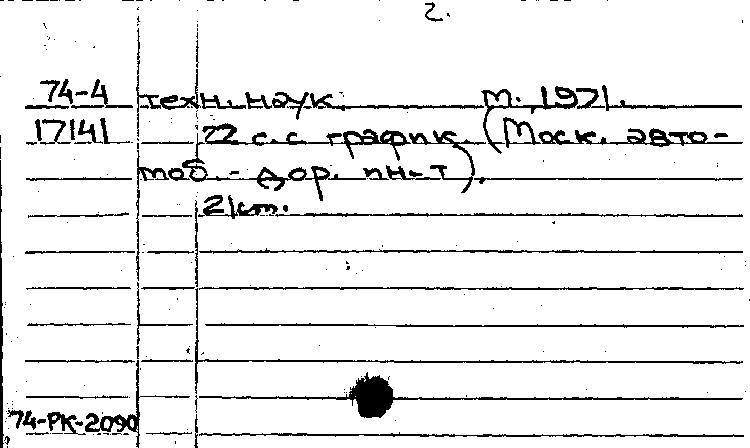 2.
74-4 техн. наук. М., 1971.
17141 22 с. с график. (Моск. авто-
моб.-дор. ин-т).
21 cm.
74-РК-2090